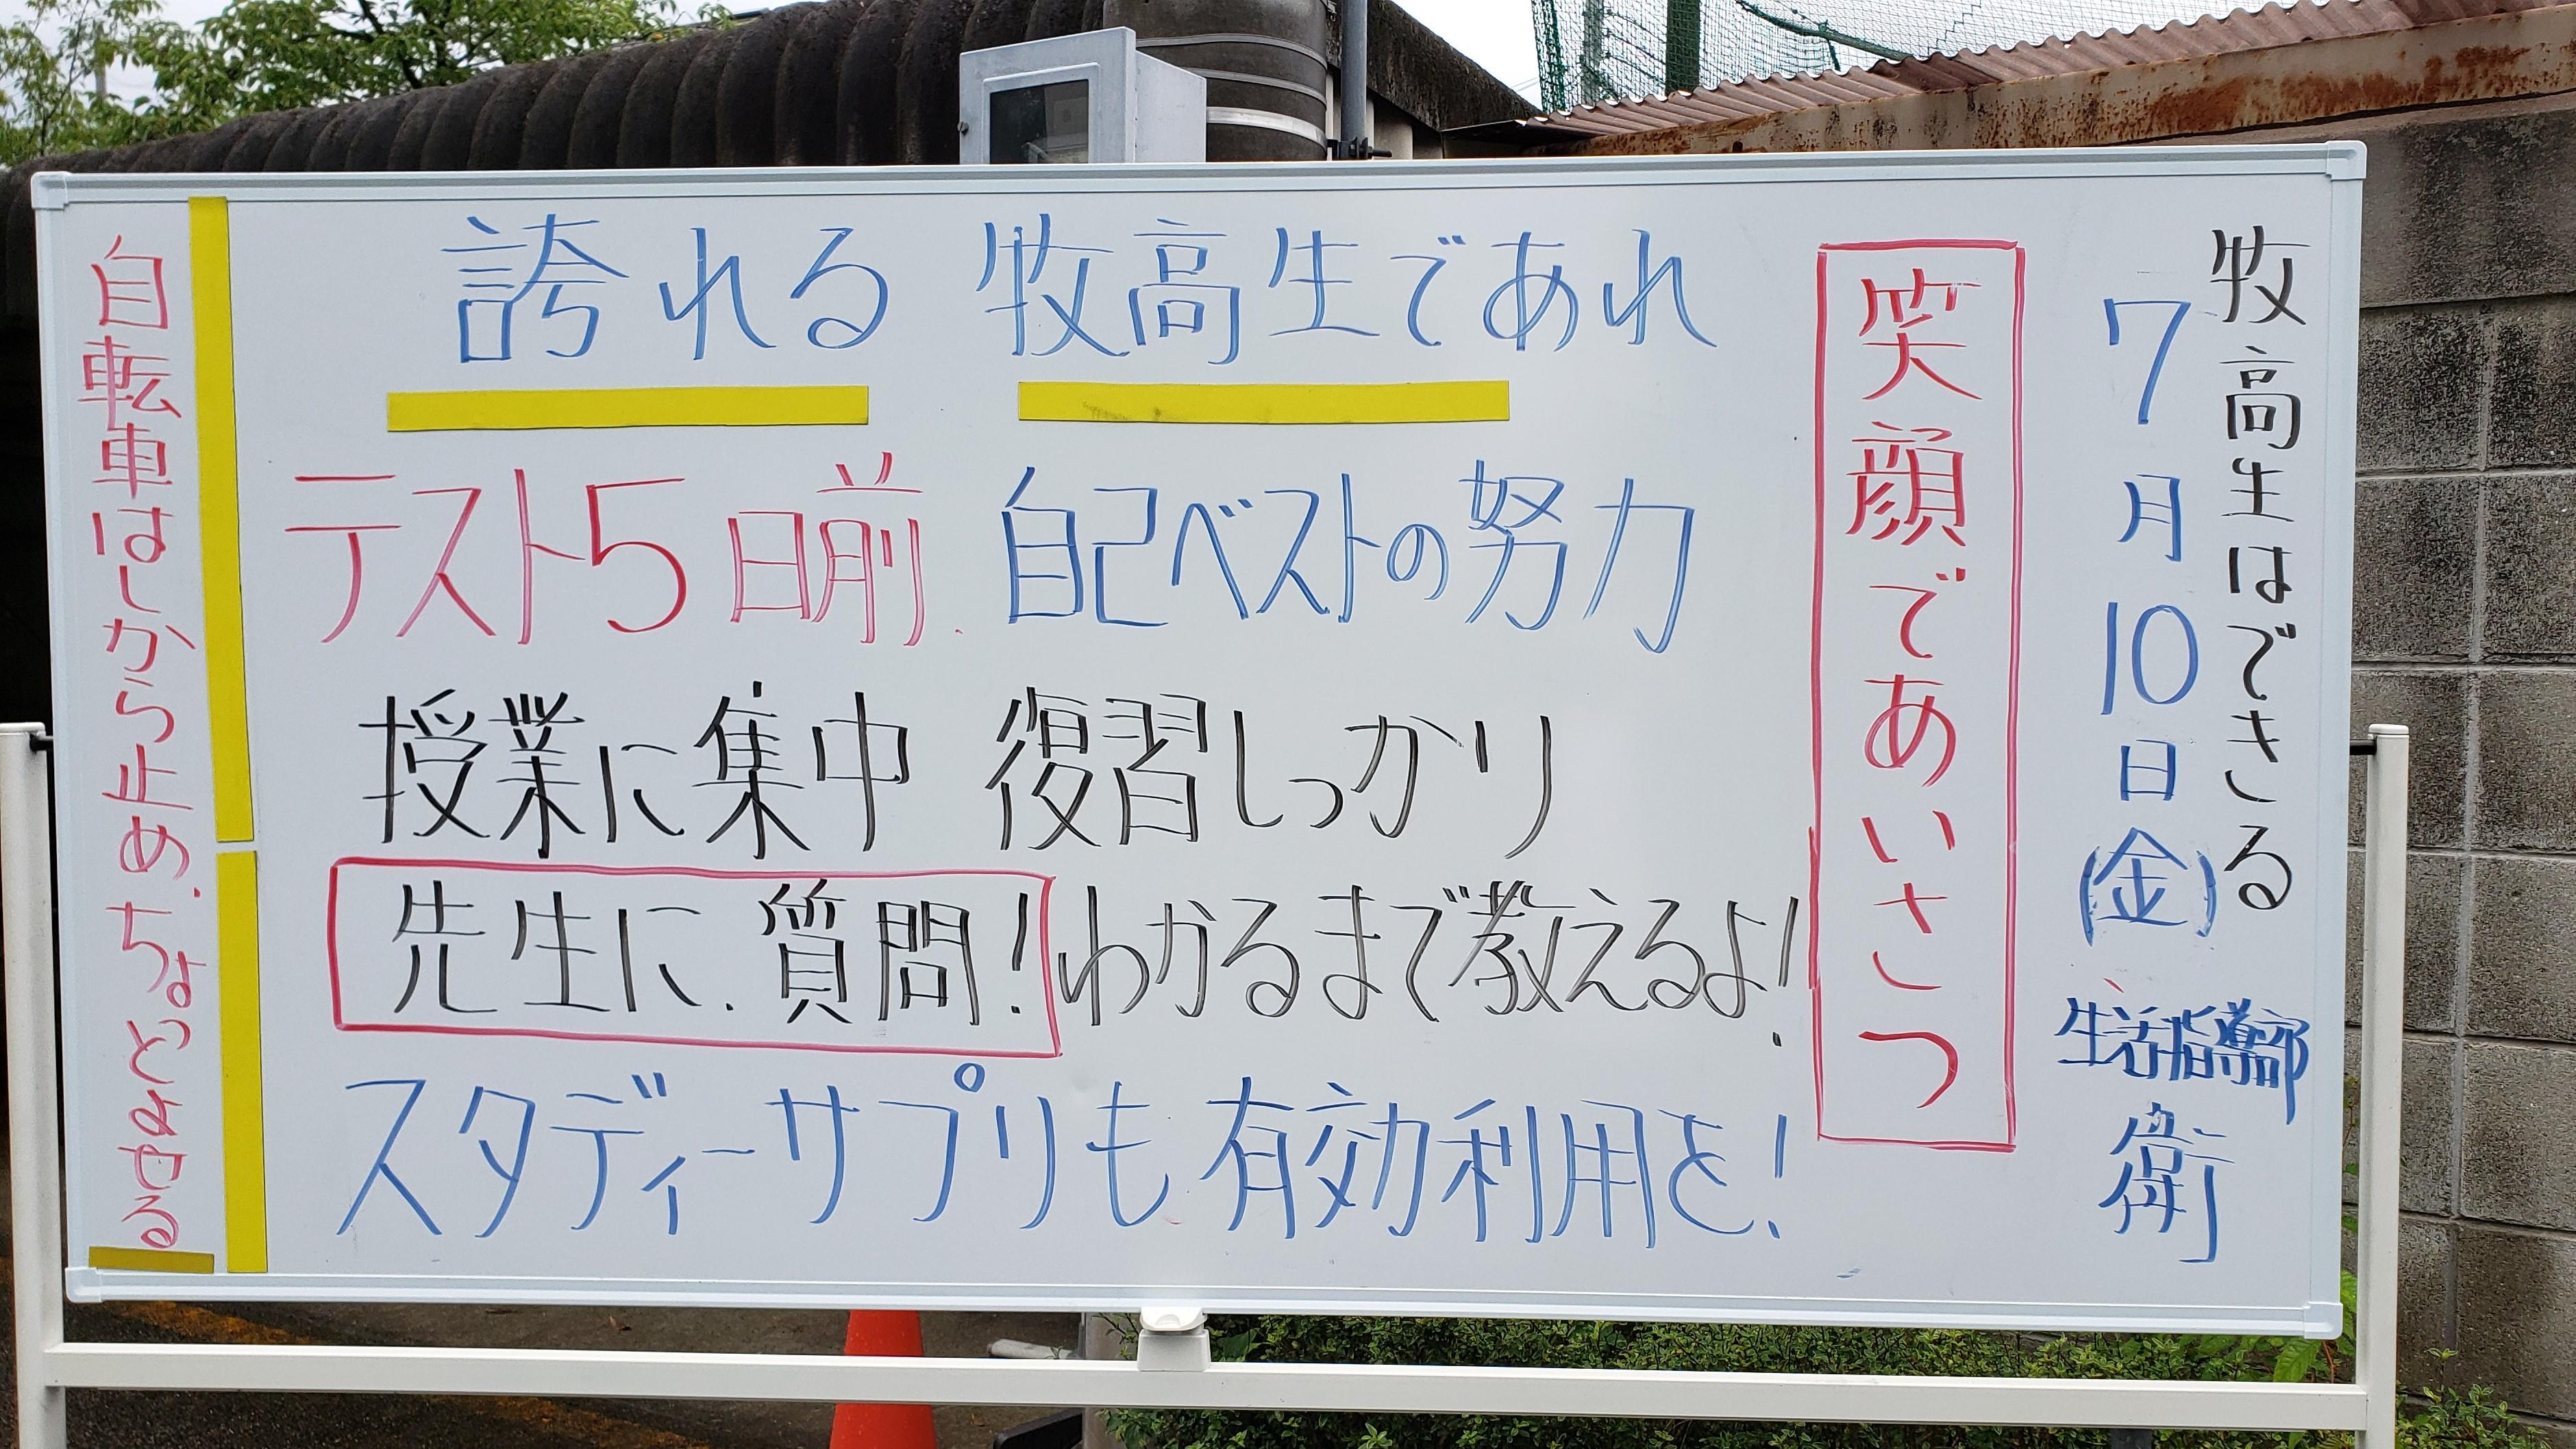 牧高生はできる
7月10日(金)
生活指導部
衛
笑顔であいさつ
誇れる 牧高生であれ
テスト5日前. 自己ベストの努力
授業に集中 復習しっかり
先生に.質問! わかるまで教えるよ!
スタディーサプリも有効利用を!
自転車はしから止め.ちょっとよせる